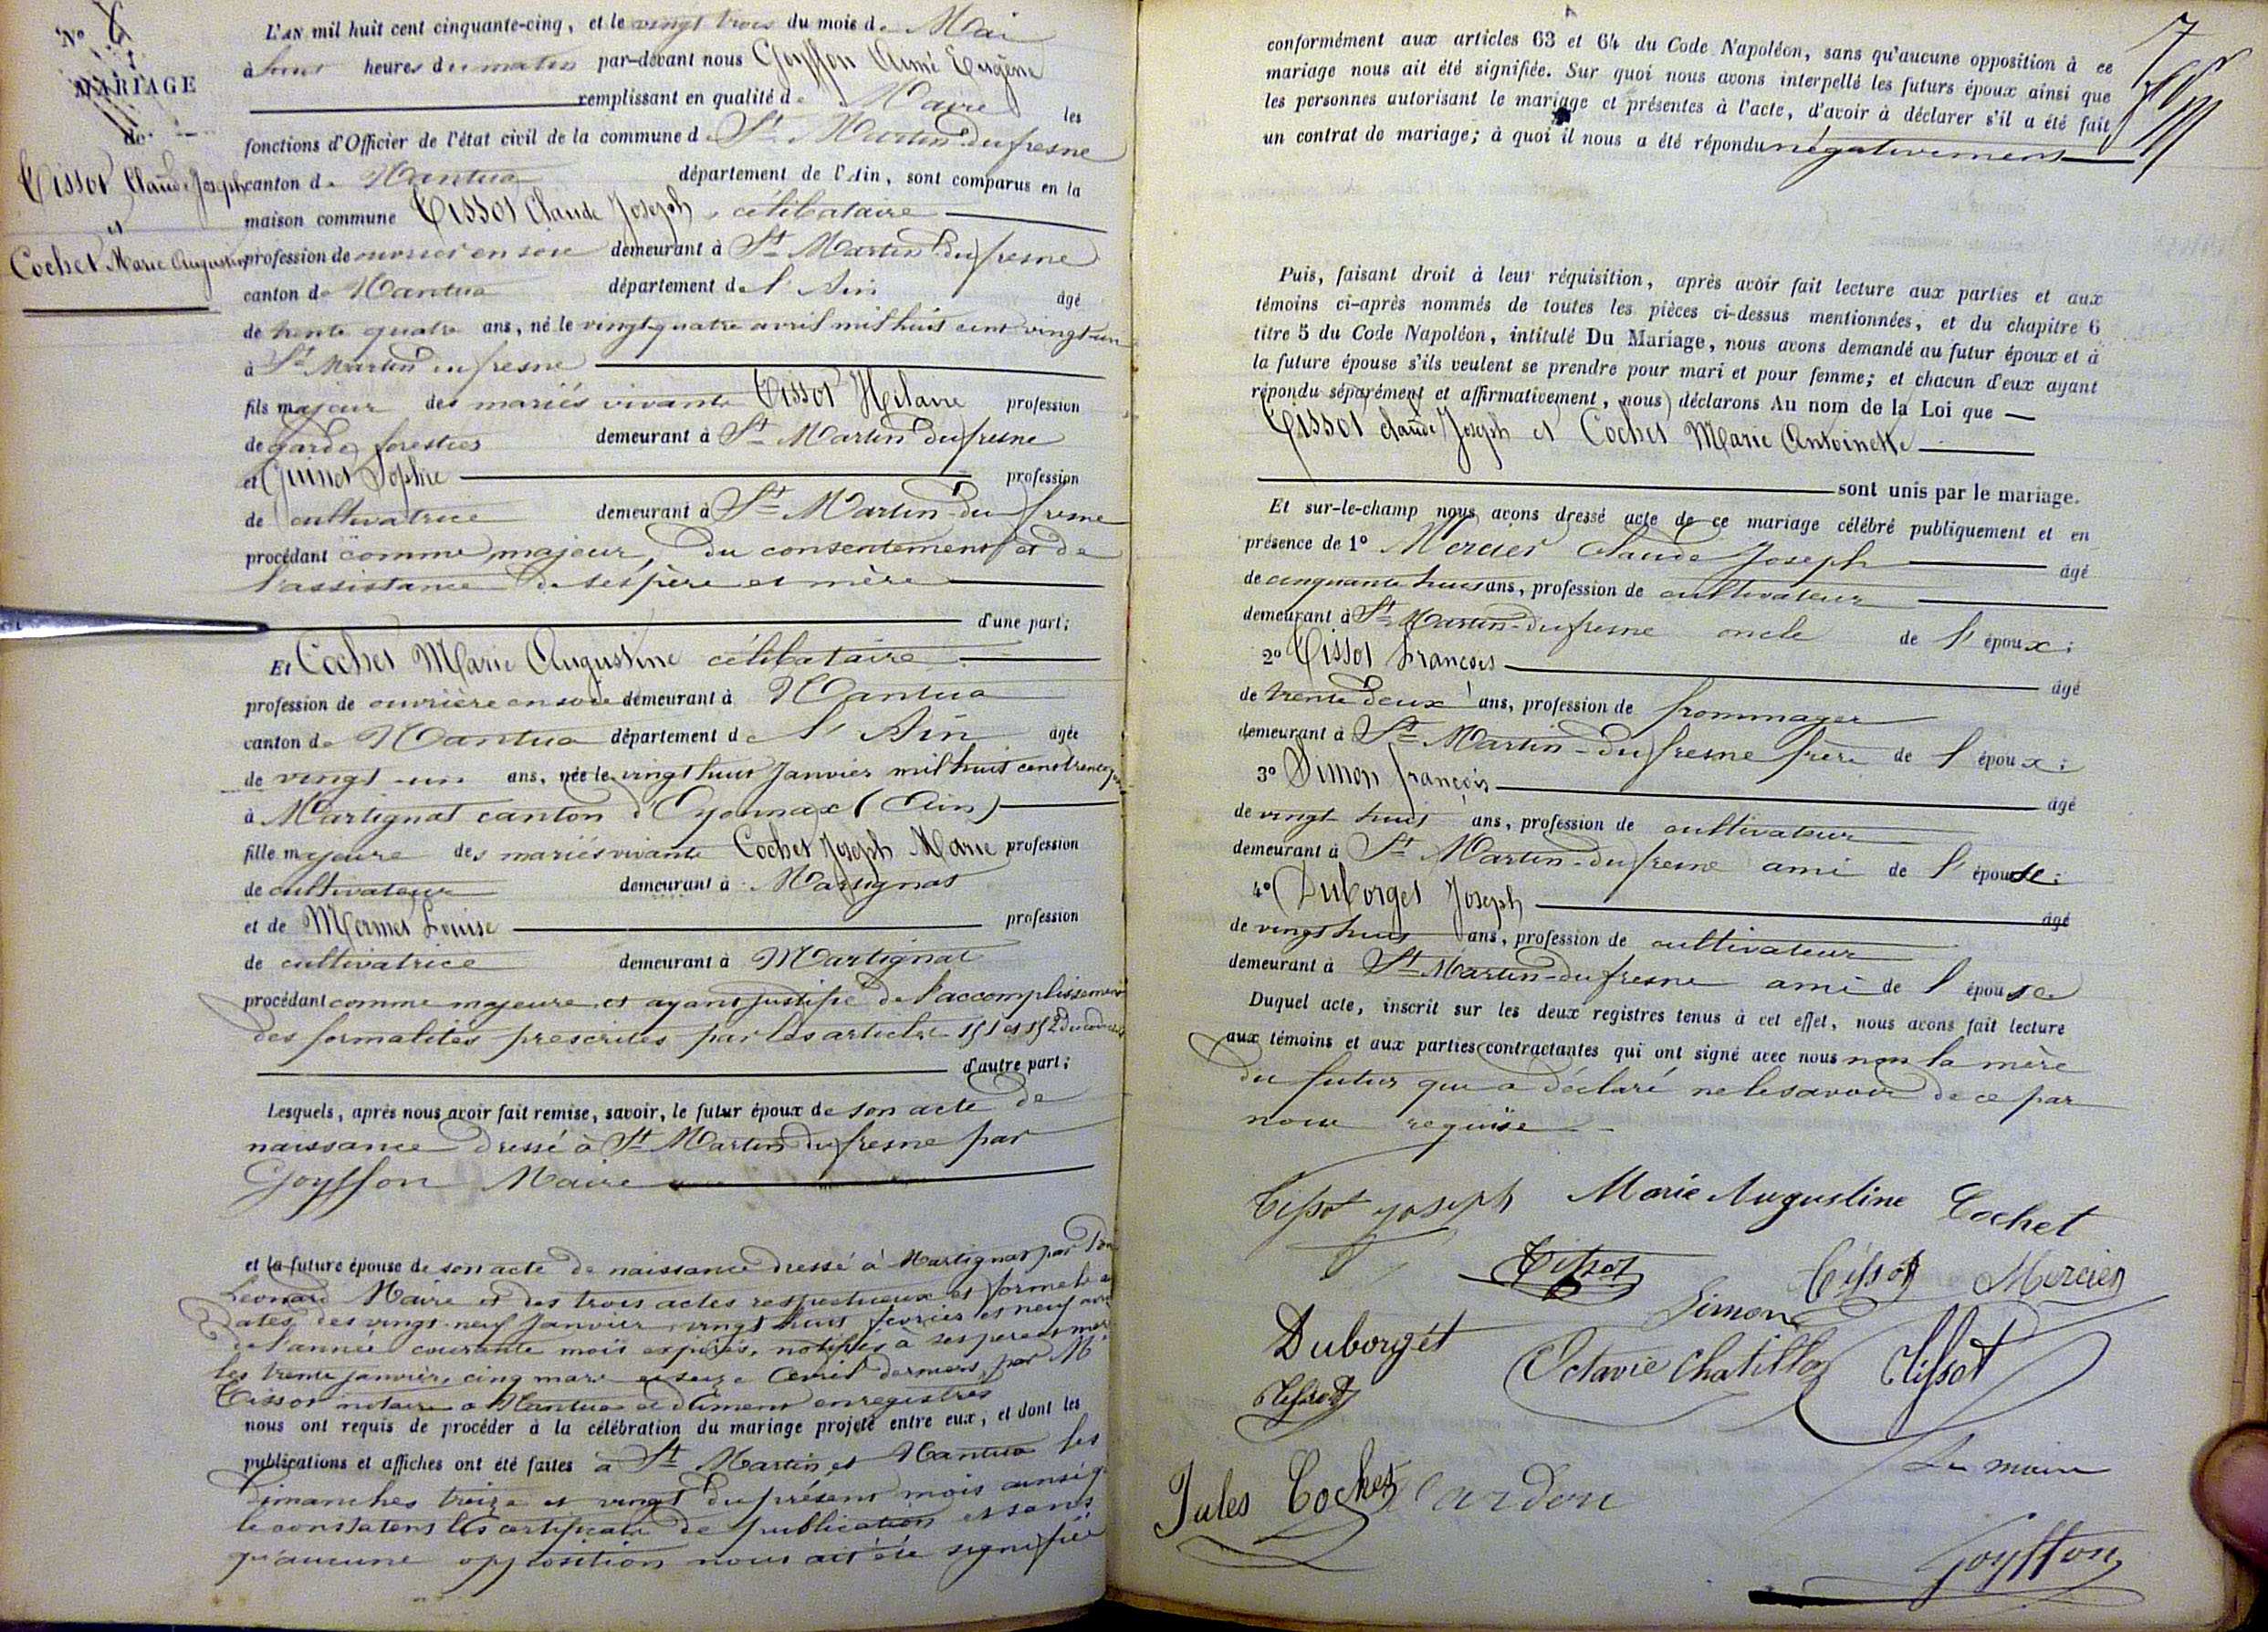 N° 8
MARIAGE
de
Tissot Claude Joseph
et
Cochet Marie Augustine
L'AN mil huit cent cinquante-cinq, et le vingt trois du mois de Mai
à huit heures du matin par-devant nous Goyffon Aimé Eugène
remplissant en qualité de Maire les
fonctions d'Officier de l'état civil de la commune d St Martin du fresne
canton de Nantua département de l'Ain, sont comparus en la
maison commune Tissot Claude Joseph, célibataire
profession de ouvrier en soie demeurant à St Martin du fresne
canton de Nantua département de l'Ain âgé
de trente quatre ans, né le vingt-quatre avril mil huit cent vingt-un
à St Martin du fresne
fils majeur des mariés vivants Tissot Hilaire profession
de garde forestier demeurant à St Martin du fresne
et Guinet Sophie profession
de cultivatrice demeurant à St Martin-du fresne
procédant comme majeur, du consentement et de
l'assistance de ses père et mère
d'une part;
Et Cochet Marie Augustine célibataire
profession de ouvrière en soie demeurant à Nantua
canton de Nantua département de l'Ain âgée
de vingt-un ans, née le vingt huit Janvier mil huit cent trente
à Martignat canton d'Oyonnax (Ain)
fille majeure des mariés vivants Cochet Joseph Marie profession
de cultivateur demeurant à Martignat
et de Mermet Louise profession
de cultivatrice demeurant à Martignat
procédant comme majeure et ayant justifié de l'accomplissement
des formalités prescrites par les articles 151 et 152 du code
d'autre part;
Lesquels, après nous avoir fait remise, savoir, le futur époux de son acte de
naissance dressé à St Martin du fresne par
Goyffon Maire
et la future épouse de son acte de naissance dressé à Martignat par
Léonard Maire et des trois actes respectueux et formels
datés des vingt-neuf Janvier, vingt huit février et neuf
de l'année courante mois expirés, notifiés à ses père et mère
les trente janvier, cinq mars et seize Avril derniers, par Me
Tissot notaire à Nantua et dûment enregistrés
nous ont requis de procéder à la célébration du mariage projeté entre eux, et dont les
publications et affiches ont été faites à St Martin et Nantua les
Dimanches treize et vingt du présent mois ainsi que
le constatent les certificats de publication et sans
qu'aucune opposition nous ait été signifiée
7
conformément aux articles 63 et 64 du Code Napoléon, sans qu'aucune opposition à ce
mariage nous ait été signifiée. Sur quoi nous avons interpellé les futurs époux ainsi que
les personnes autorisant le mariage et présentes à l'acte, d'avoir à déclarer s'il a été fait
un contrat de mariage; à quoi il nous a été répondu négativement
Puis, faisant droit à leur réquisition, après avoir fait lecture aux parties et aux
témoins ci-après nommés de toutes les pièces ci-dessus mentionnées, et du chapitre 6
titre 5 du Code Napoléon, intitulé Du Mariage, nous avons demandé au futur époux et à
la future épouse s'ils veulent se prendre pour mari et pour femme; et chacun d'eux ayant
répondu séparément et affirmativement, nous déclarons Au nom de la Loi que
Tissot Claude Joseph et Cochet Marie Antoinette
sont unis par le mariage.
Et sur-le-champ nous avons dressé acte de ce mariage célébré publiquement et en
présence de 1° Mercier Claude Joseph âgé
de cinquante huit ans, profession de cultivateur
demeurant à St Martin-du fresne oncle de l'époux;
2° Tissot François âgé
de trente deux ans, profession de frommager
demeurant à St Martin-du fresne frère de l'époux;
3° Simon françois âgé
de vingt huit ans, profession de cultivateur
demeurant à St Martin-du fresne ami de l'épouse;
4° Duborget Joseph âgé
de vingt huit ans, profession de cultivateur
demeurant à St Martin-du fresne ami de l'épouse
Duquel acte, inscrit sur les deux registres tenus à cet effet, nous avons fait lecture
aux témoins et aux parties contractantes qui ont signé avec nous non la mère
du futur qui a déclaré ne le savoir de ce par
nous requise
Tissot joseph Marie Augustine Cochet
Tissot Tissot Mercier
Simon
Duborget Octavie Chatillon Tissot
Tissot
Jules Cochet Cardon Le maire
Goyffon